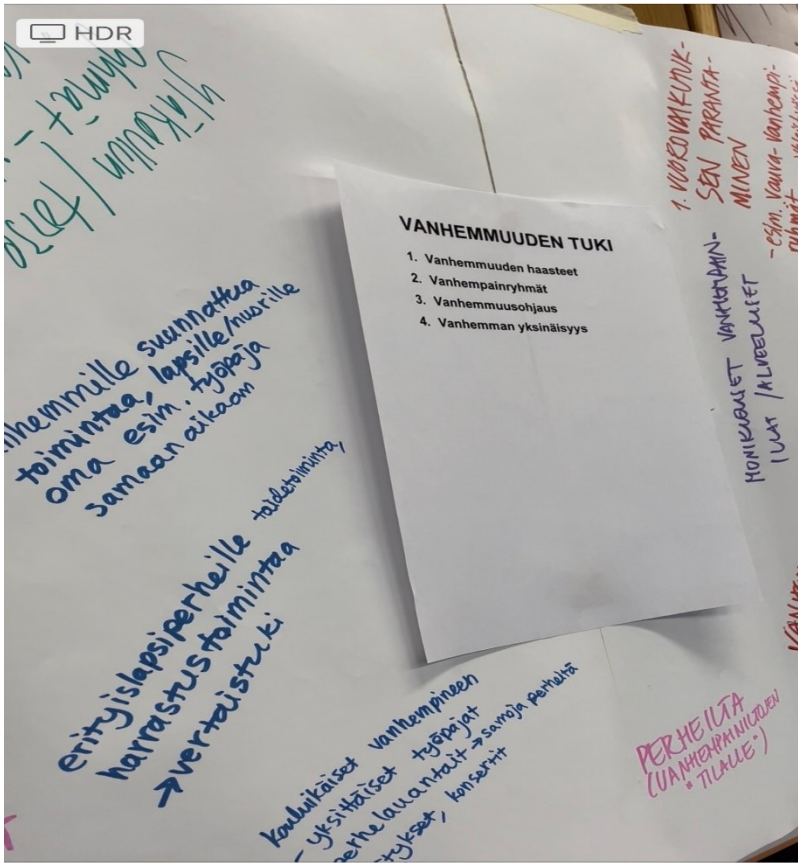 HDR
ryhmät -
Yläkoulun /
VANHEMMUUDEN TUKI
1. Vanhemmuuden haasteet
2. Vanhempainryhmät
3. Vanhemmuusohjaus
4. Vanhemman yksinäisyys
nhemmille suunnattua
toimintaa, lapsille/nuorille
oma esim. työpaja
samaan aikaan
taidetoiminta,
erityislapsiperheille
harrastustoimintaa
→ vertaistuki
kouluikäiset vanhempineen
- yksittäiset työpajat
perhelauantait → samoja perheitä
tykset, konsertit
1. VUOROVAIKUTUK-
SEN PARANTA-
MINEN
- esim. vauva-vanhempi-
ryhmät
MONIKULUISET VANHEMPAIN-
ILLAT / ALVEELLISET
PERHEILTA
(VANHEMPAINILTOJEN
"TILALLE")